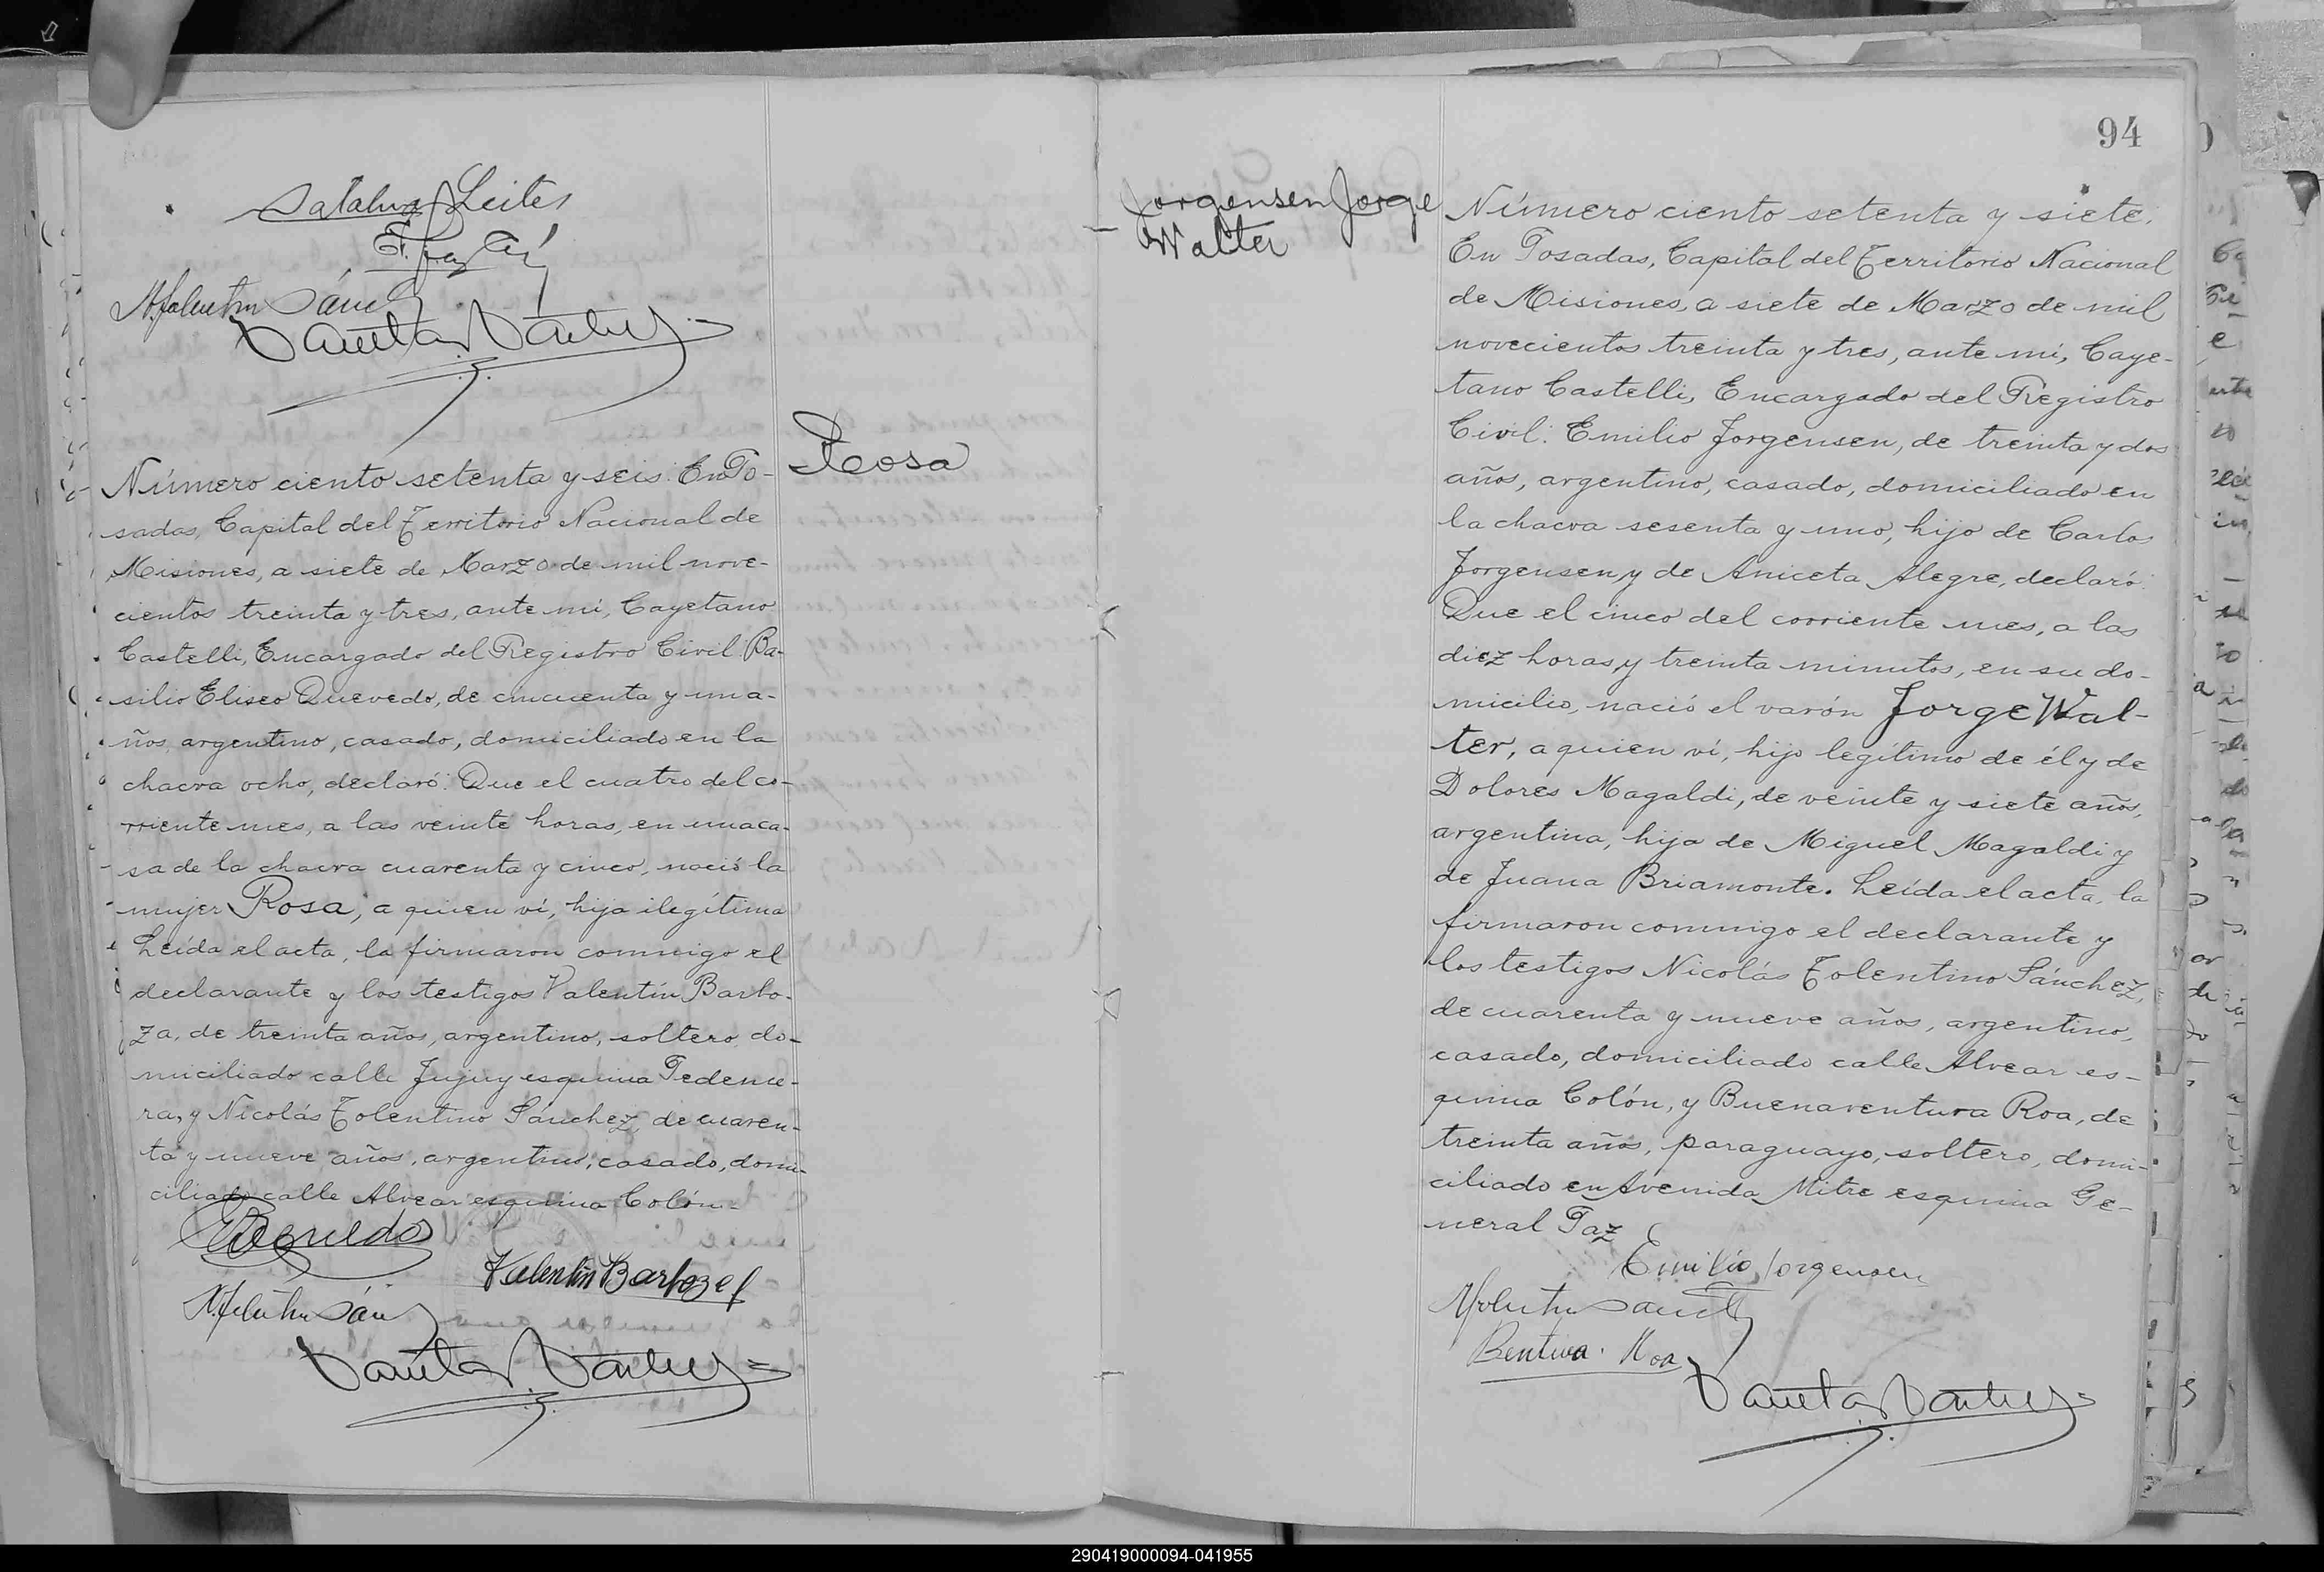 Leites
Número ciento setenta y seis. En Po-
sadas, Capital del Territorio Nacional de
Misiones, a siete de Marzo de mil nove-
cientos treinta y tres, ante mí, Cayetano
Castelli, Encargado del Registro Civil: Ba-
silio Eliseo Quevedo, de cincuenta y un a-
ños, argentino, casado, domiciliado en la
chacra ocho, declaró: Que el cuatro del co-
rriente mes, a las veinte horas, en una ca-
sa de la chacra cuarenta y cinco, nació la
mujer Rosa, a quien ví, hija ilegítima
Leída el acta, la firmaron conmigo el
declarante y los testigos Valentín Barbo-
za, de treinta años, argentino, soltero, do-
miciliado calle Jujuy esquina Pederne-
ra, y Nicolás Tolentino Sánchez, de cuaren-
ta y nueve años, argentino, casado, domi-
ciliado calle Alvear esquina Colón.
Valentín Barboza
Rosa
94
Jorgensen Jorge
Walter
Número ciento setenta y siete.
En Posadas, Capital del Territorio Nacional
de Misiones, a siete de Marzo de mil
novecientos treinta y tres, ante mí, Caye-
tano Castelli, Encargado del Registro
Civil: Emilio Jorgensen, de treinta y dos
años, argentino, casado, domiciliado en
la chacra sesenta y uno, hijo de Carlos
Jorgensen y de Aniceta Alegre, declaró:
Que el cinco del corriente mes, a las
diez horas y treinta minutos, en su do-
micilio, nació el varón Jorge Wal-
ter, a quien ví, hijo legítimo de él y de
Dolores Magaldi, de veinte y siete años,
argentina, hija de Miguel Magaldi y
de Juana Briamonte. Leída el acta, la
firmaron conmigo el declarante y
los testigos Nicolás Tolentino Sánchez,
de cuarenta y nueve años, argentino,
casado, domiciliado calle Alvear es-
quina Colón, y Buenaventura Roa, de
treinta años, paraguayo, soltero, domi-
ciliado en Avenida Mitre esquina Ge-
neral Paz
Emilio Jorgensen
Roa
290419000094-041955